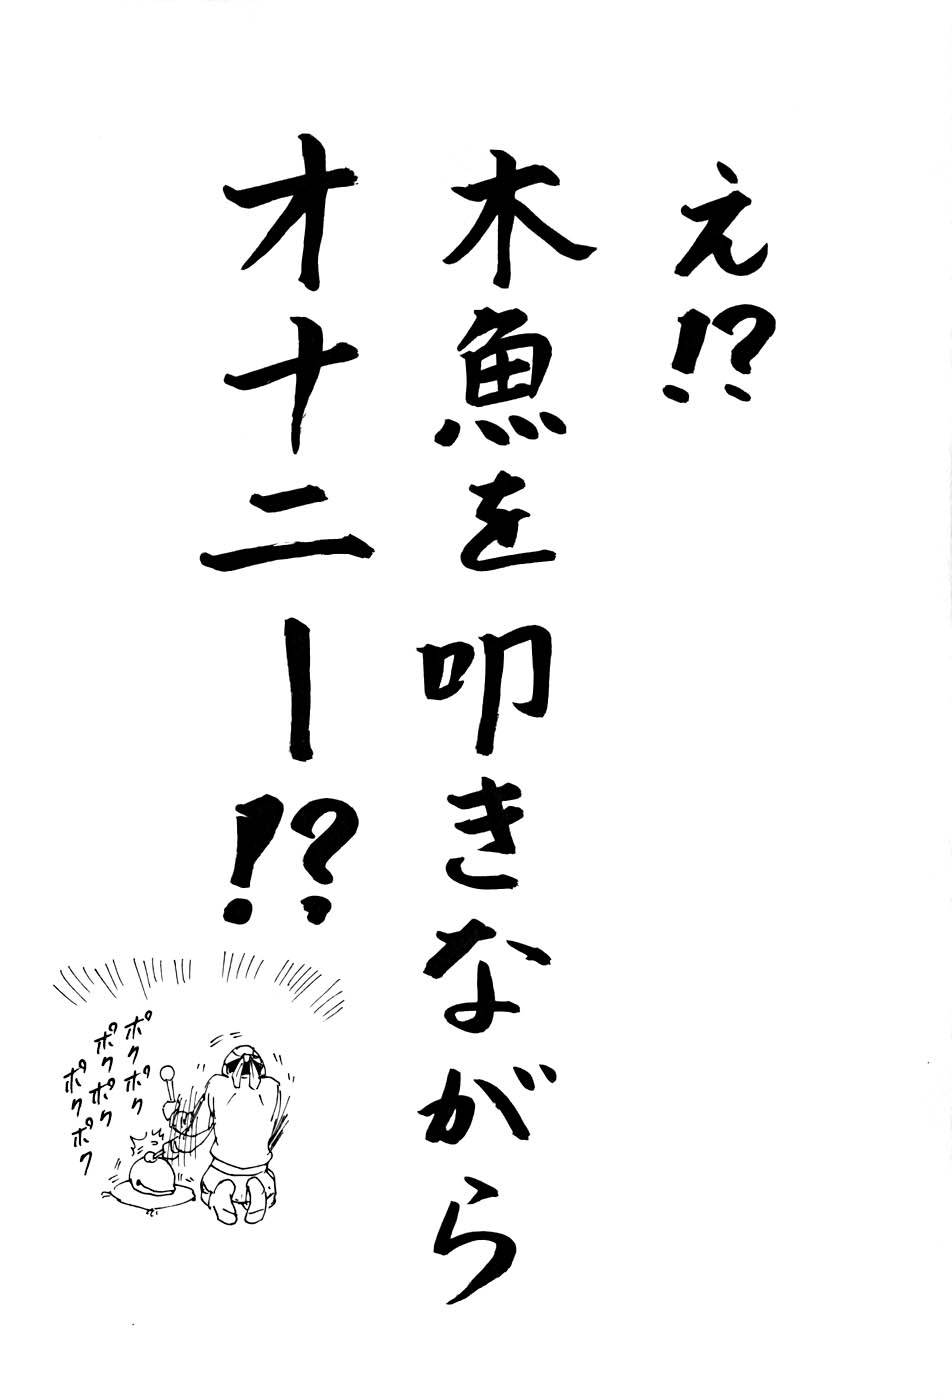 え!?
木魚を叩きながら
オナニー!?
ポクポク
ポクポク
ポクポク